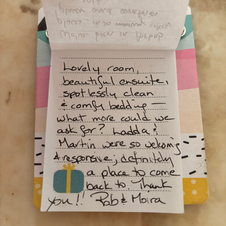 Lovely room,
beautiful ensuite,
spotlessly clean
& comfy bedding —
what more could we
ask for? Ladda &
Martin were so welcoming
& responsive, definitely
a place to come
back to. Thank
you!! Rob & Moira